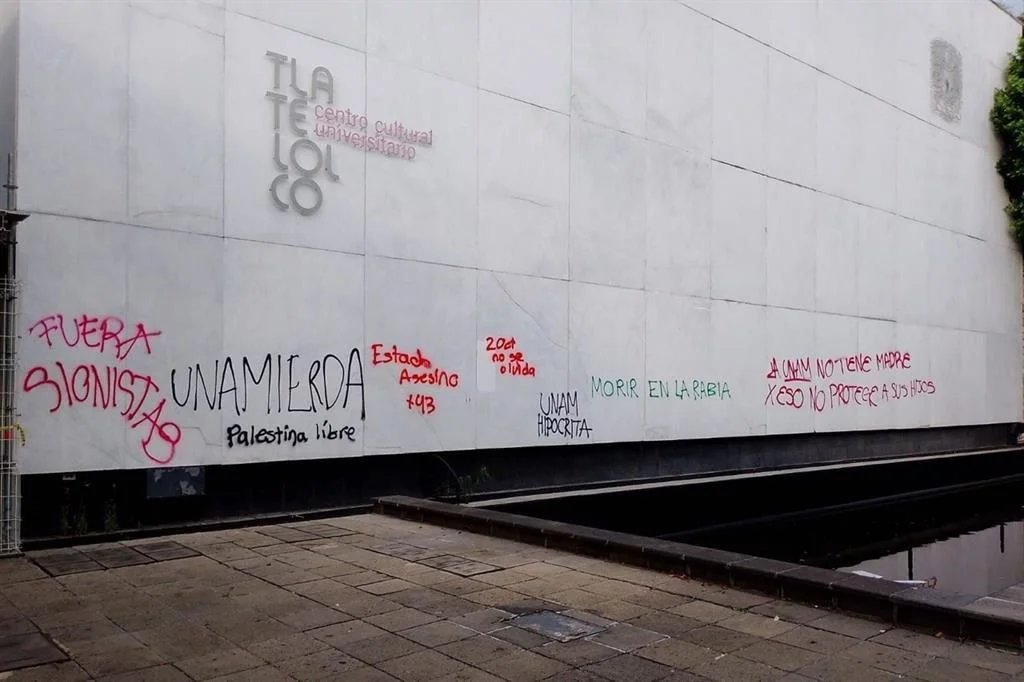 TLA
TE
LOL
CO
centro cultural
universitario
FUERA
SIONISTAS
UNAMIERDA
Palestina libre
Estado
Asesino
+43
2 Oct
no se
olvida
UNAM
HIPOCRITA
MORIR EN LA RABIA
LA UNAM NO TIENE MADRE
X ESO NO PROTEGE A SUS HIJOS